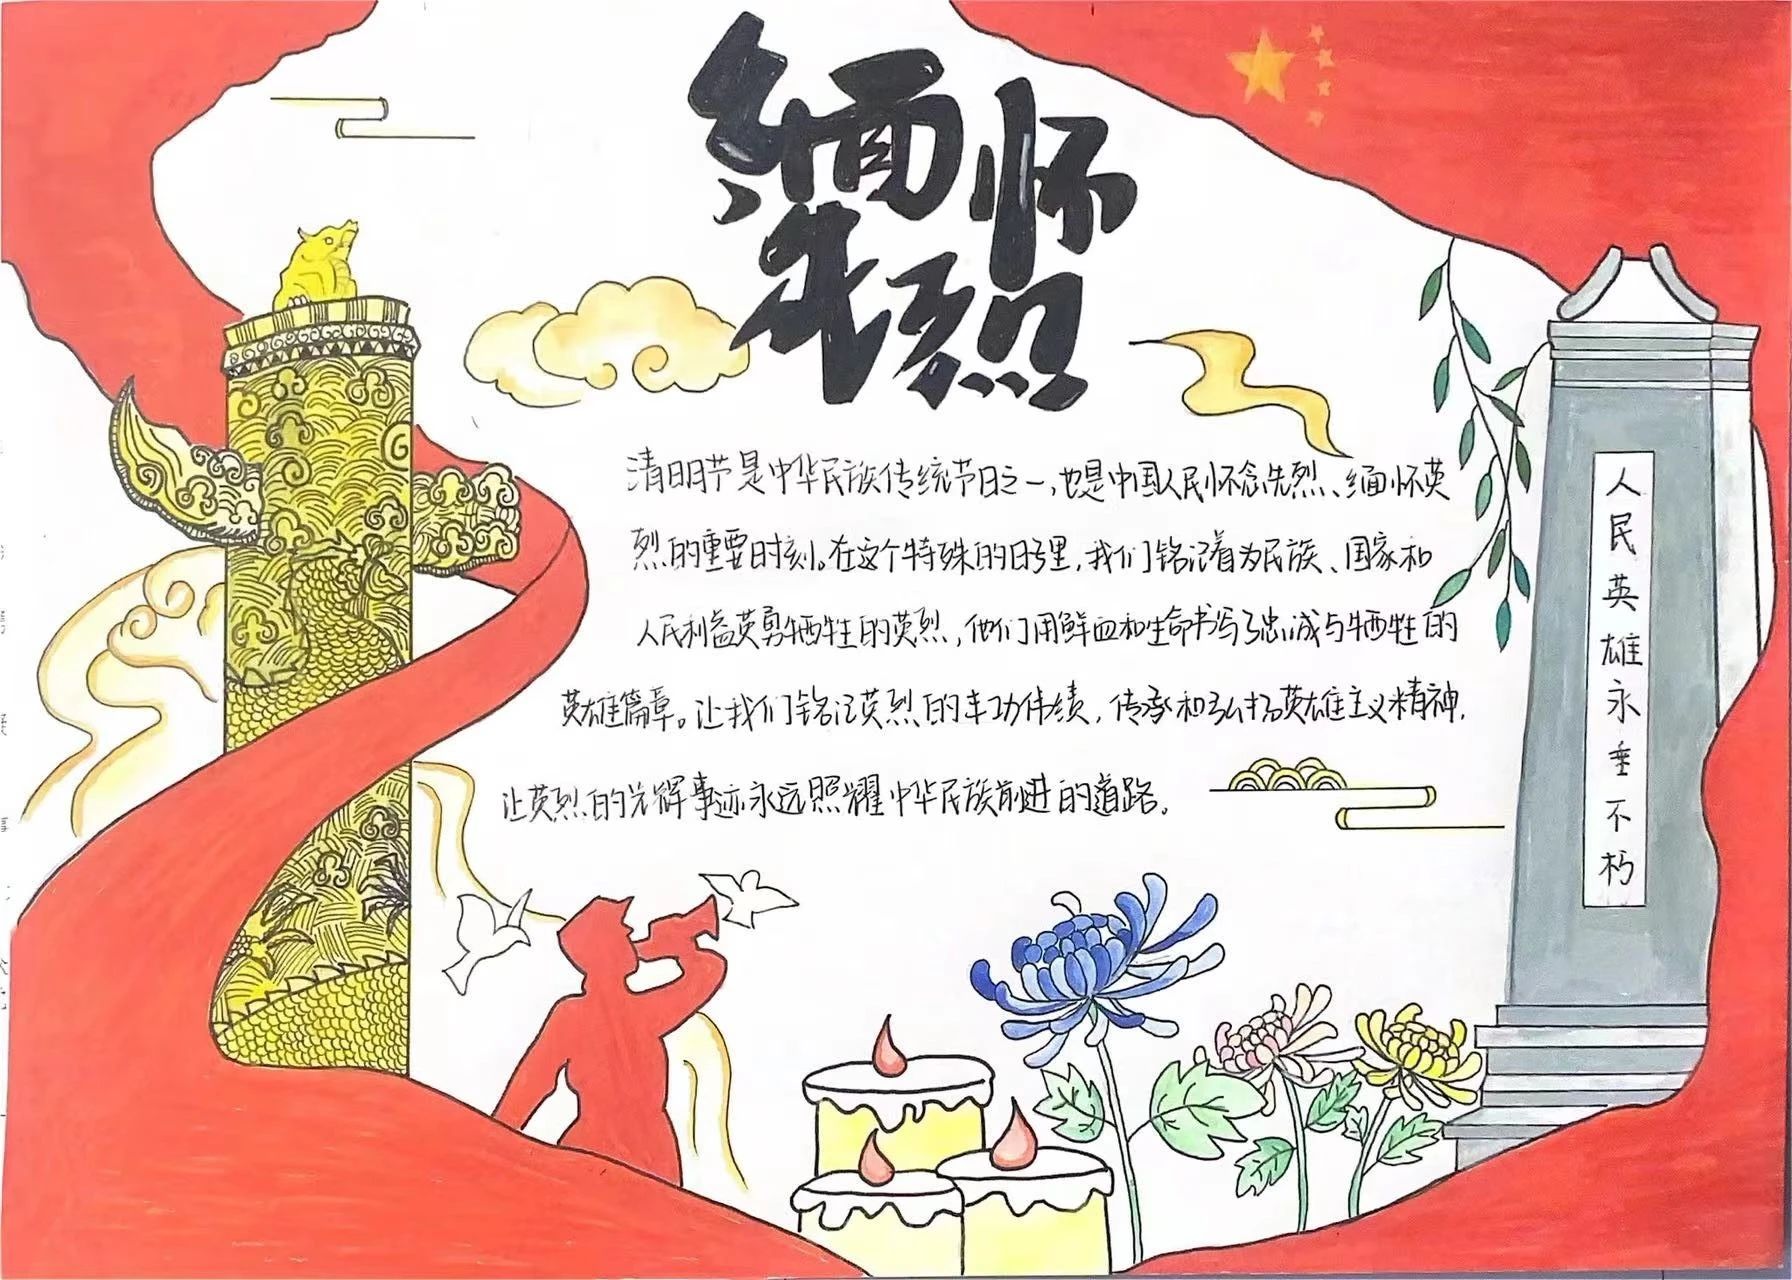 缅怀
先烈
清明节是中华民族传统节日之一,也是中国人民怀念先烈、缅怀英
烈的重要时刻。在这个特殊的日子里,我们铭记着为民族、国家和
人民利益英勇牺牲的英烈,他们用鲜血和生命书写了忠诚与牺牲的
英雄篇章。让我们铭记英烈的丰功伟绩,传承和弘扬英雄主义精神,
让英烈的光辉事迹永远照耀中华民族前进的道路。
人民英雄永垂不朽